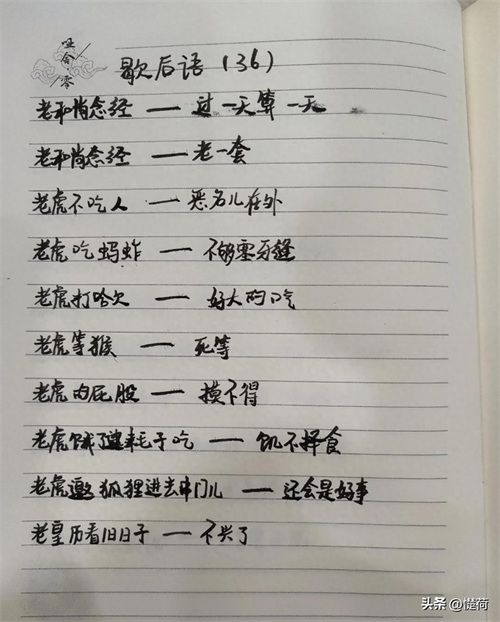 歇后语（36）
老和尚念经 — 过一天算一天
老和尚念经 — 老一套
老虎不吃人 — 恶名儿在外
老虎吃蚂蚱 — 不够塞牙缝
老虎打哈欠 — 好大的口气
老虎等猴 — 死等
老虎的屁股 — 摸不得
老虎饿了逮耗子吃 — 饥不择食
老虎邀狐狸进去串门儿 — 还会是好事
老皇历看旧日子 — 不兴了
头条 @憷荷